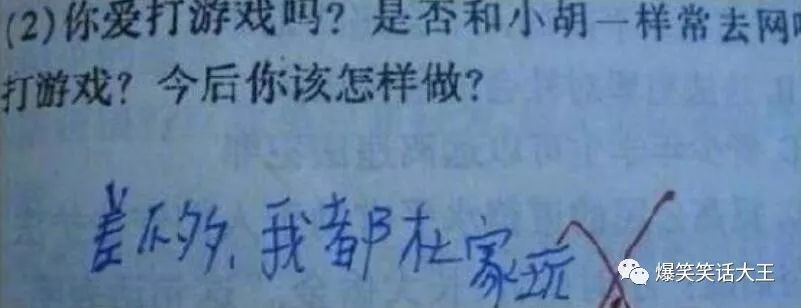 (2)你爱打游戏吗？是否和小胡一样常去网吧
打游戏？今后你该怎样做？
差不多，我都在家玩
爆笑笑话大王